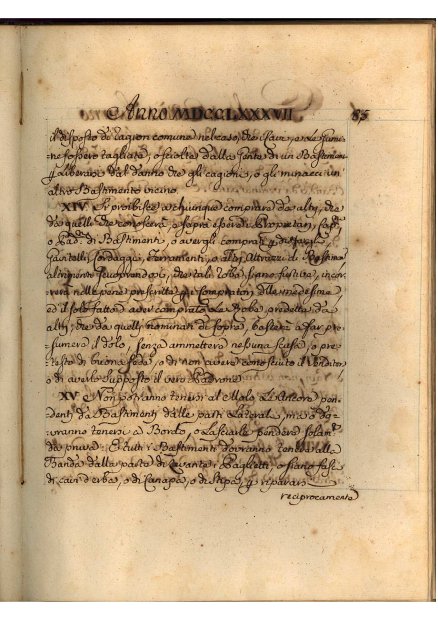 Anno MDCCLXXXVII 85
il disposto di ragion comune nel caso, che i Cavi, o le Gumi-
ne fossero tagliate, o sciolte dalla Gente di un Bastimento
liberarsi dal danno che gli cagioni, o gli minacci un
altro Bastimento vicino.
XIV Si proibisce a chiunque comprare da altri, che
da quelli che conoscerà, o saprà essere i Proprietarj, Cap.ni
o Pad.ni di Bastimenti, o avergli comprati
Gavitelli, Cordaggi, Ormeggi, o altri Attrazzi di
altrimenti facendo che tali Robe siano furtive, incor-
rerà nelle pene prescritte ai Compratori delle medesime
ed il solo fatto d'aver comprato la Roba predetta da
altri, che da quelli nominati di sopra, basterà a far pre-
sumere il dolo, senza ammettere nessuna scusa, o pre-
testo di buona fede, o di non avere conosciuto il Venditore
o di averlo supposto il vero Padrone.
XV Non potranno tenersi al Molo le Ancore pen-
denti da Bastimenti dalle parti Laterali, ma o do-
vranno tenersi a Bordo, o lasciarle pendere solam.te
da prua. E tutti i Bastimenti dovranno tenere alla
Banda dalla parte di Levante i Paglietti, o siano fasci
di cavi d'erba, o di Canapa, o di Stipa, p riparars
reciprocamente